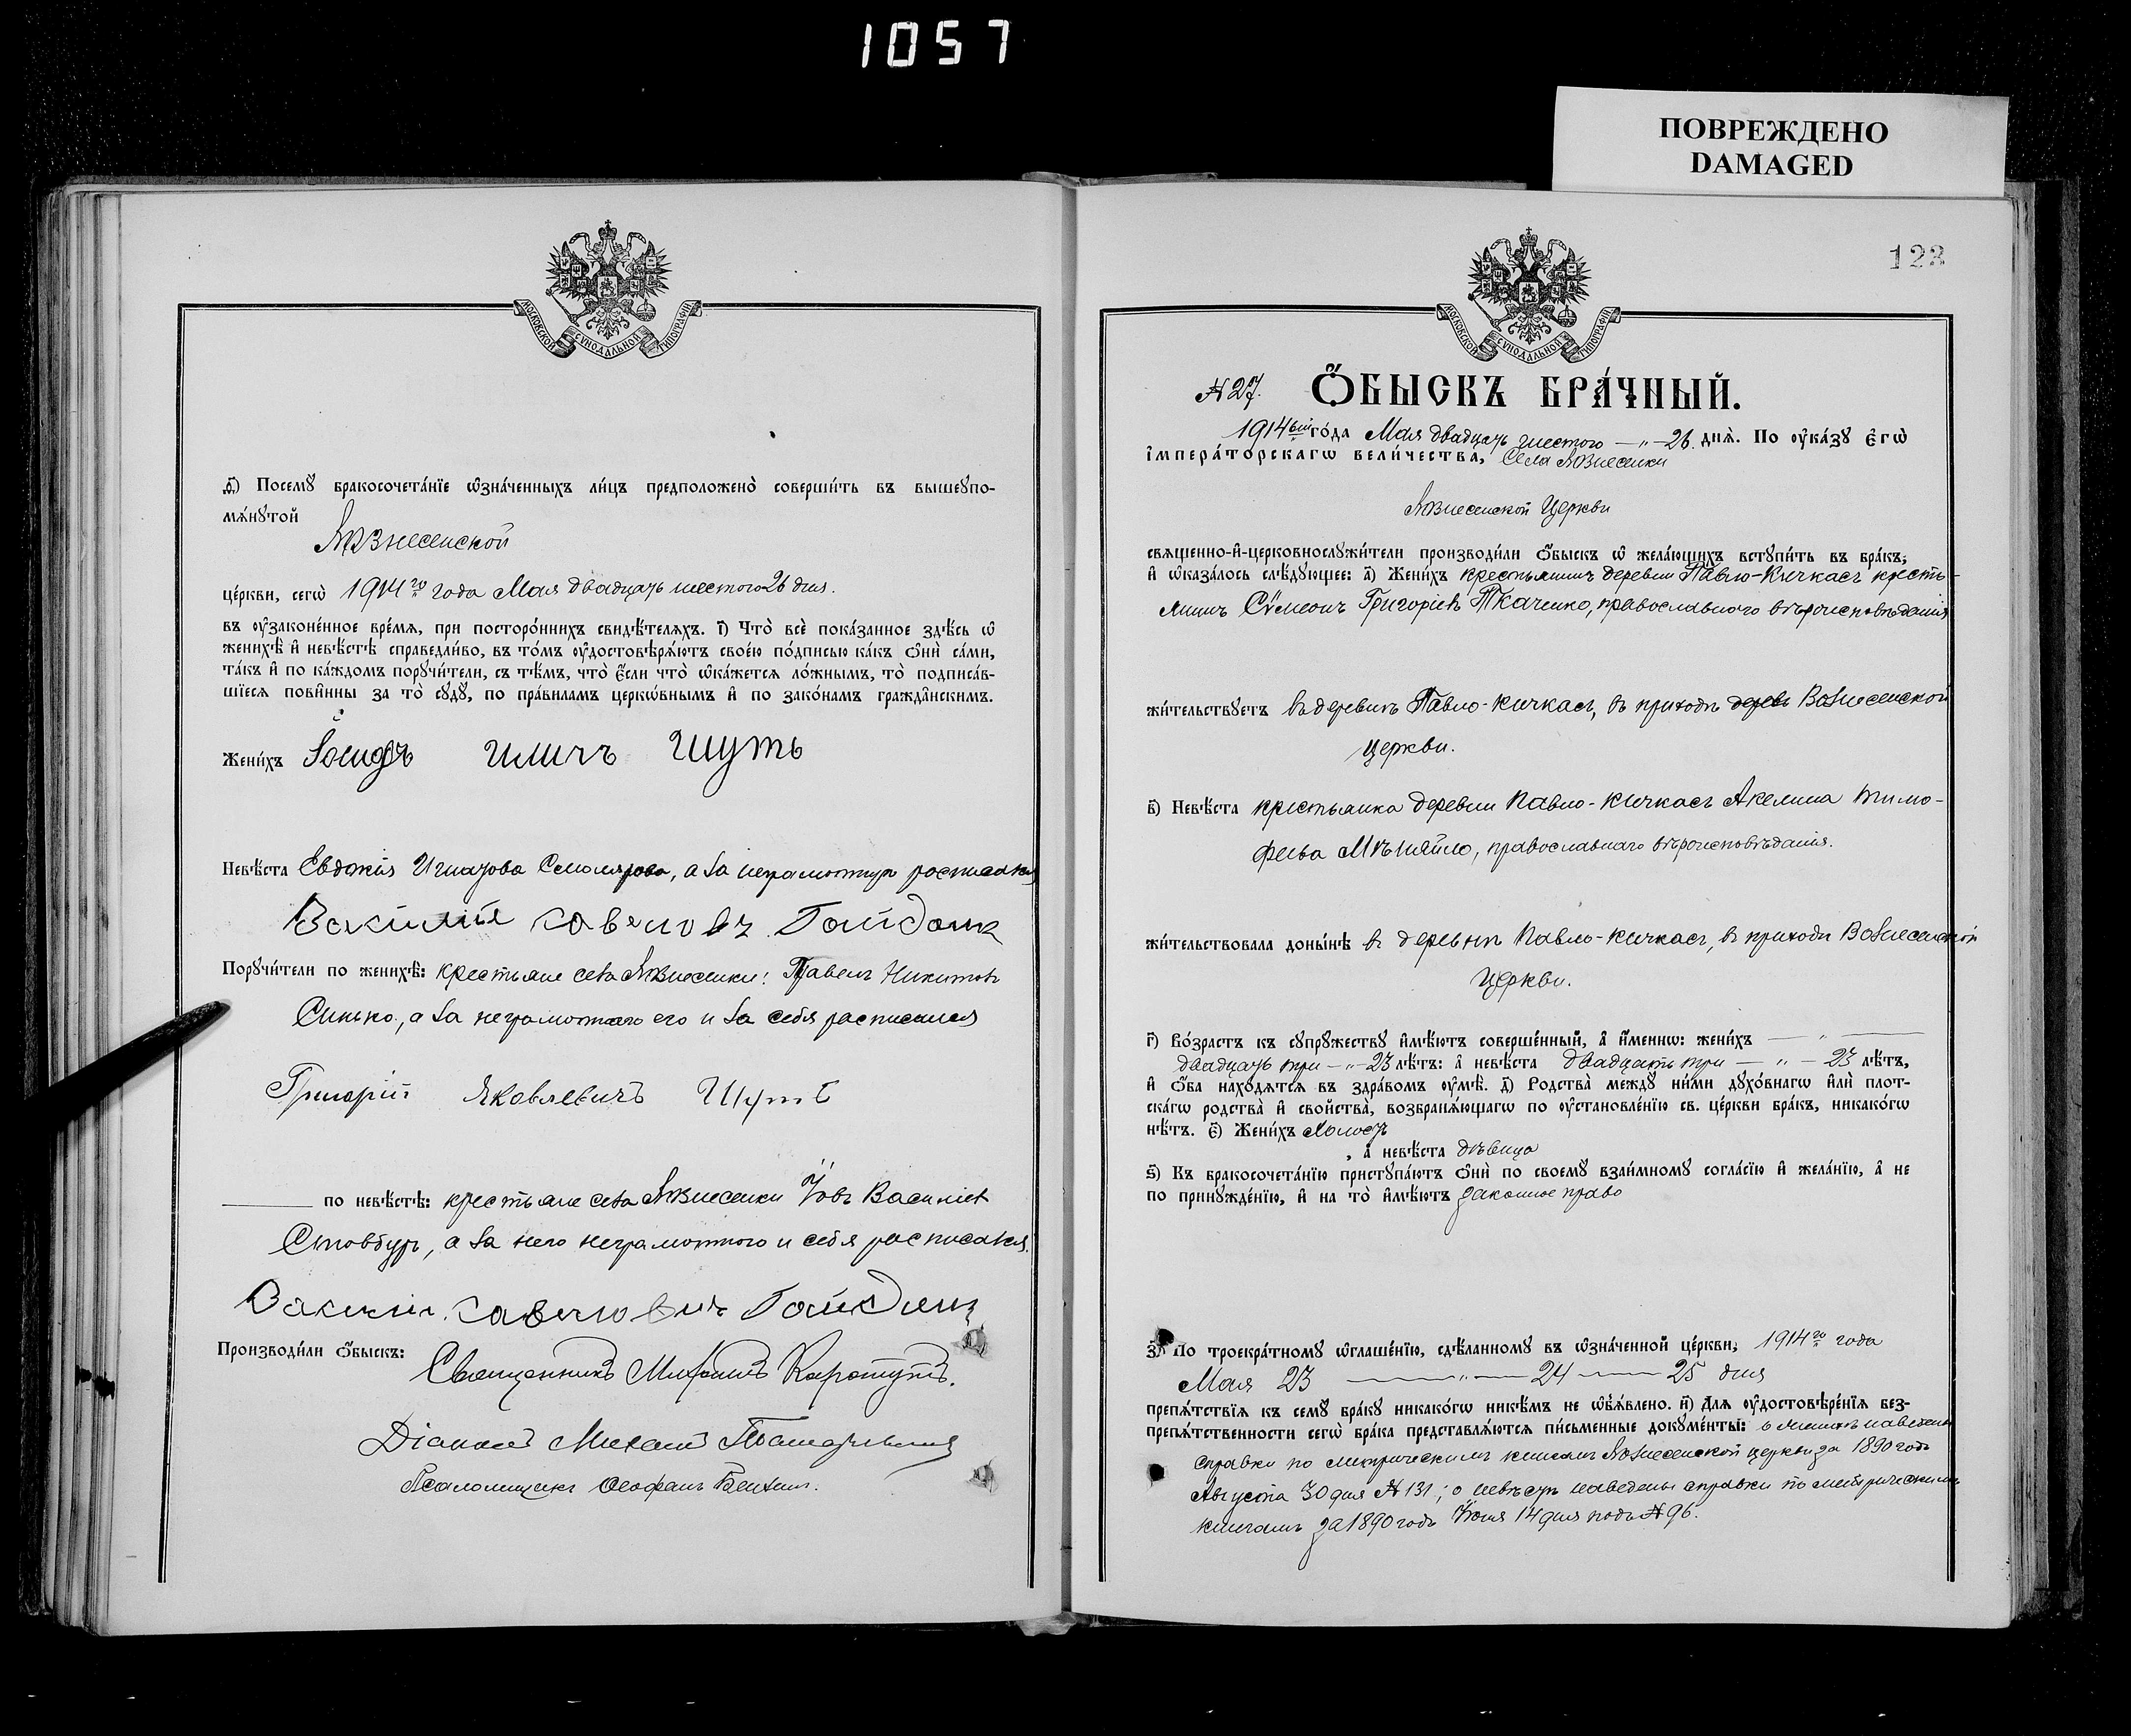 1057
ПОВРЕЖДЕНО
DAMAGED
МОСКОВСКОЙ СѴНОДАЛЬНОЙ ТИПОГРАФІИ
ѳ҃) Посемꙋ̀ бракосочета́нїе ѡ҆зна́ченныхъ ли́цъ предположено̀ соверши́ть въ вышеꙋпо-
мѧ́нꙋтой
Вознесенской
це́ркви, сегѡ̀ 1914го года Мая двадцать шестого 26 дня.
въ ᲂу҆зако́ненное вре́мѧ, при посторо́ннихъ свидѣ́телѧхъ. і҃) Что̀ всѐ пока́занное здѣ́сь ѡ҆
женихѣ̀ и҆ невѣ́стѣ справедли́во, въ то́мъ ᲂу҆достовѣрѧ́ютъ свое́ю по́дписью ка́къ ѻ҆нѝ са́ми,
та́къ и҆ по ка́ждомъ порꙋчи́тели, съ тѣ́мъ, что̀ є҆́сли что̀ ѡ҆ка́жетсѧ ло́жнымъ, то̀ подписа́в-
шїесѧ пови́нны за то̀ сꙋдꙋ̀, по пра́виламъ церкѡ́внымъ и҆ по зако́намъ гражда̑нскимъ.
Жени́хъ Іосифъ Иличъ Шуть
Невѣ́ста Евдокія Игнатова Смолярова, а за неграмотную росписался
Василій Савеловъ Гайдакъ
Порꙋчи́тели по женихѣ̀: крестьяне села Вознесенки: Павелъ Никитовъ
Синько, а за неграмотнаго его и за себя расписался
Григорій Яковлевичъ Шуть
по невѣ́стѣ: крестьяне села Вознесенки Іовъ Василіевъ
Стовбуръ, а за него неграмотного и себя росписался
Производи́ли ѻ҆́быскъ: Священникъ Михаилъ
Діаконъ Михаилъ
Псаломщикъ Ѳеофанъ
123
МОСКОВСКОЙ СѴНОДАЛЬНОЙ ТИПОГРАФІИ
№ 27. Ѻ҆́БЫСКЪ БРА́ЧНЫЙ.
1914 го́да Мая двадцать шестого — „ — 26. днѧ̀. По ᲂу҆ка́зꙋ є҆гѡ̀
і҆мпера́торскагѡ вели́чества, Села Вознесенки
Вознесенской Церкви
свѧщенно-и҆-церковнослꙋжи́тели производи́ли ѻ҆́быскъ ѡ҆ жела́ющихъ встꙋпи́ть въ бра́къ,
и҆ ѡ҆каза́лось слѣ́дꙋющее: а҃) Жени́хъ крестьянинъ деревни Павло-Кичкасъ кресть-
янинъ Сѵмеонъ Григоріевъ Ткаченко, православного вѣроисповѣданія
жи́тельствꙋетъ въ деревнѣ Павло-Кичкасъ, въ приходѣ Вознесенской
церкви.
в҃) Невѣ́ста крестьянка деревни Павло-Кичкасъ Акелина Тимо-
феева, православнаго вѣроисповѣданія.
жи́тельствовала доны́нѣ въ деревнѣ Павло-Кичкасъ, въ приходѣ Вознесенской
Церкви.
г҃) Во́зрастъ къ сꙋпрꙋ́жествꙋ и҆мѣ́ютъ соверше́нный, а҆ и҆́меннѡ: жени́хъ — „ —
двадцать три — „ — 23 лѣ́тъ: а҆ невѣ́ста двадцать три — „ — 23 лѣ́тъ,
и҆ ѻ҆́ба нахо́дѧтсѧ въ здра́вомъ ᲂу҆мѣ̀. д҃) Родства̀ междꙋ̀ ни́ми дꙋхо́внагѡ и҆лѝ плот-
ска́гѡ родства̀ и҆ сво́йства̀, возбранѧ́ющагѡ по ᲂу҆становле́нїю св. це́ркви бра́къ, никако́гѡ
нѣ́тъ. є҃) Жени́хъ холостъ
, а҆ невѣ́ста дѣвица
ѕ҃) Къ бракосочета́нїю пристꙋпа́ютъ ѻ҆нѝ по своемꙋ̀ взаи́мномꙋ согла́сїю и҆ жела́нїю, а҆ не
по принꙋжде́нїю, и҆ на то̀ и҆мѣ́ютъ законное право
з҃) По троекра́тномꙋ ѡ҆глаше́нїю, сдѣ́ланномꙋ въ ѡ҆зна́ченной це́ркви, 1914го года
Мая 23 — „ — 24 — 25 дня
препѧ́тствїѧ къ семꙋ̀ бра́кꙋ никако́гѡ никѣ́мъ не ѡ҆б̾ѧ́влено. и҃) Длѧ ᲂу҆достовѣре́нїѧ без-
препѧ́тственности сегѡ̀ бра́ка представлѧ́ютсѧ пи́сьменные докꙋме́нты: о женихѣ наведены
справки по метрическимъ книгамъ Вознесенской церкви за 1890 годъ
Августа 30 дня № 131; о невѣстѣ наведены справки по метрическимъ
книгамъ за 1890 годъ Іюня 14 дня подъ № 96.